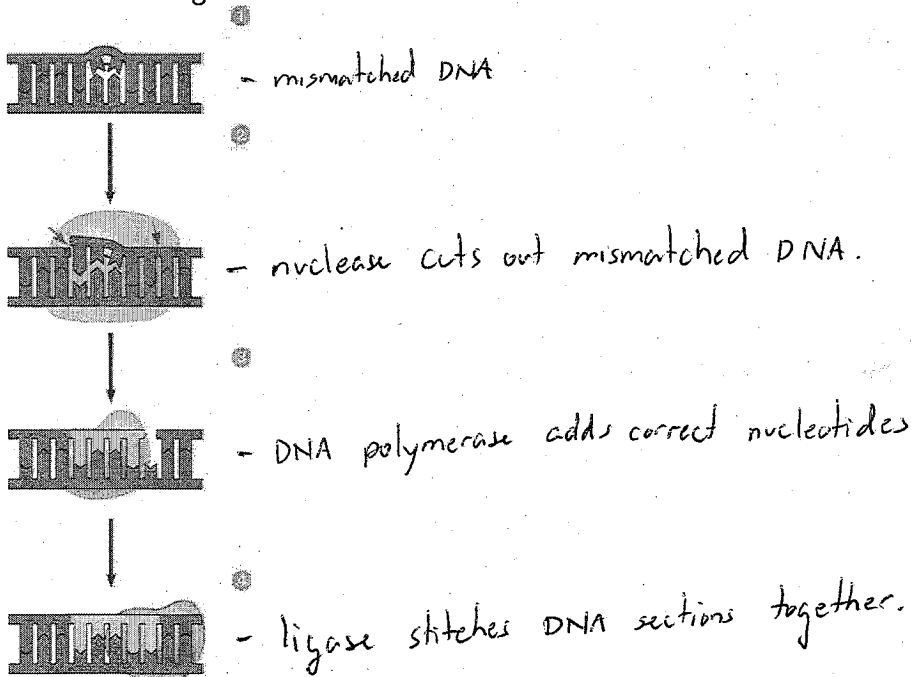 1
- mismatched DNA
2
- nuclease cuts out mismatched DNA.
3
- DNA polymerase adds correct nucleotides
4
- ligase stitches DNA sections together.